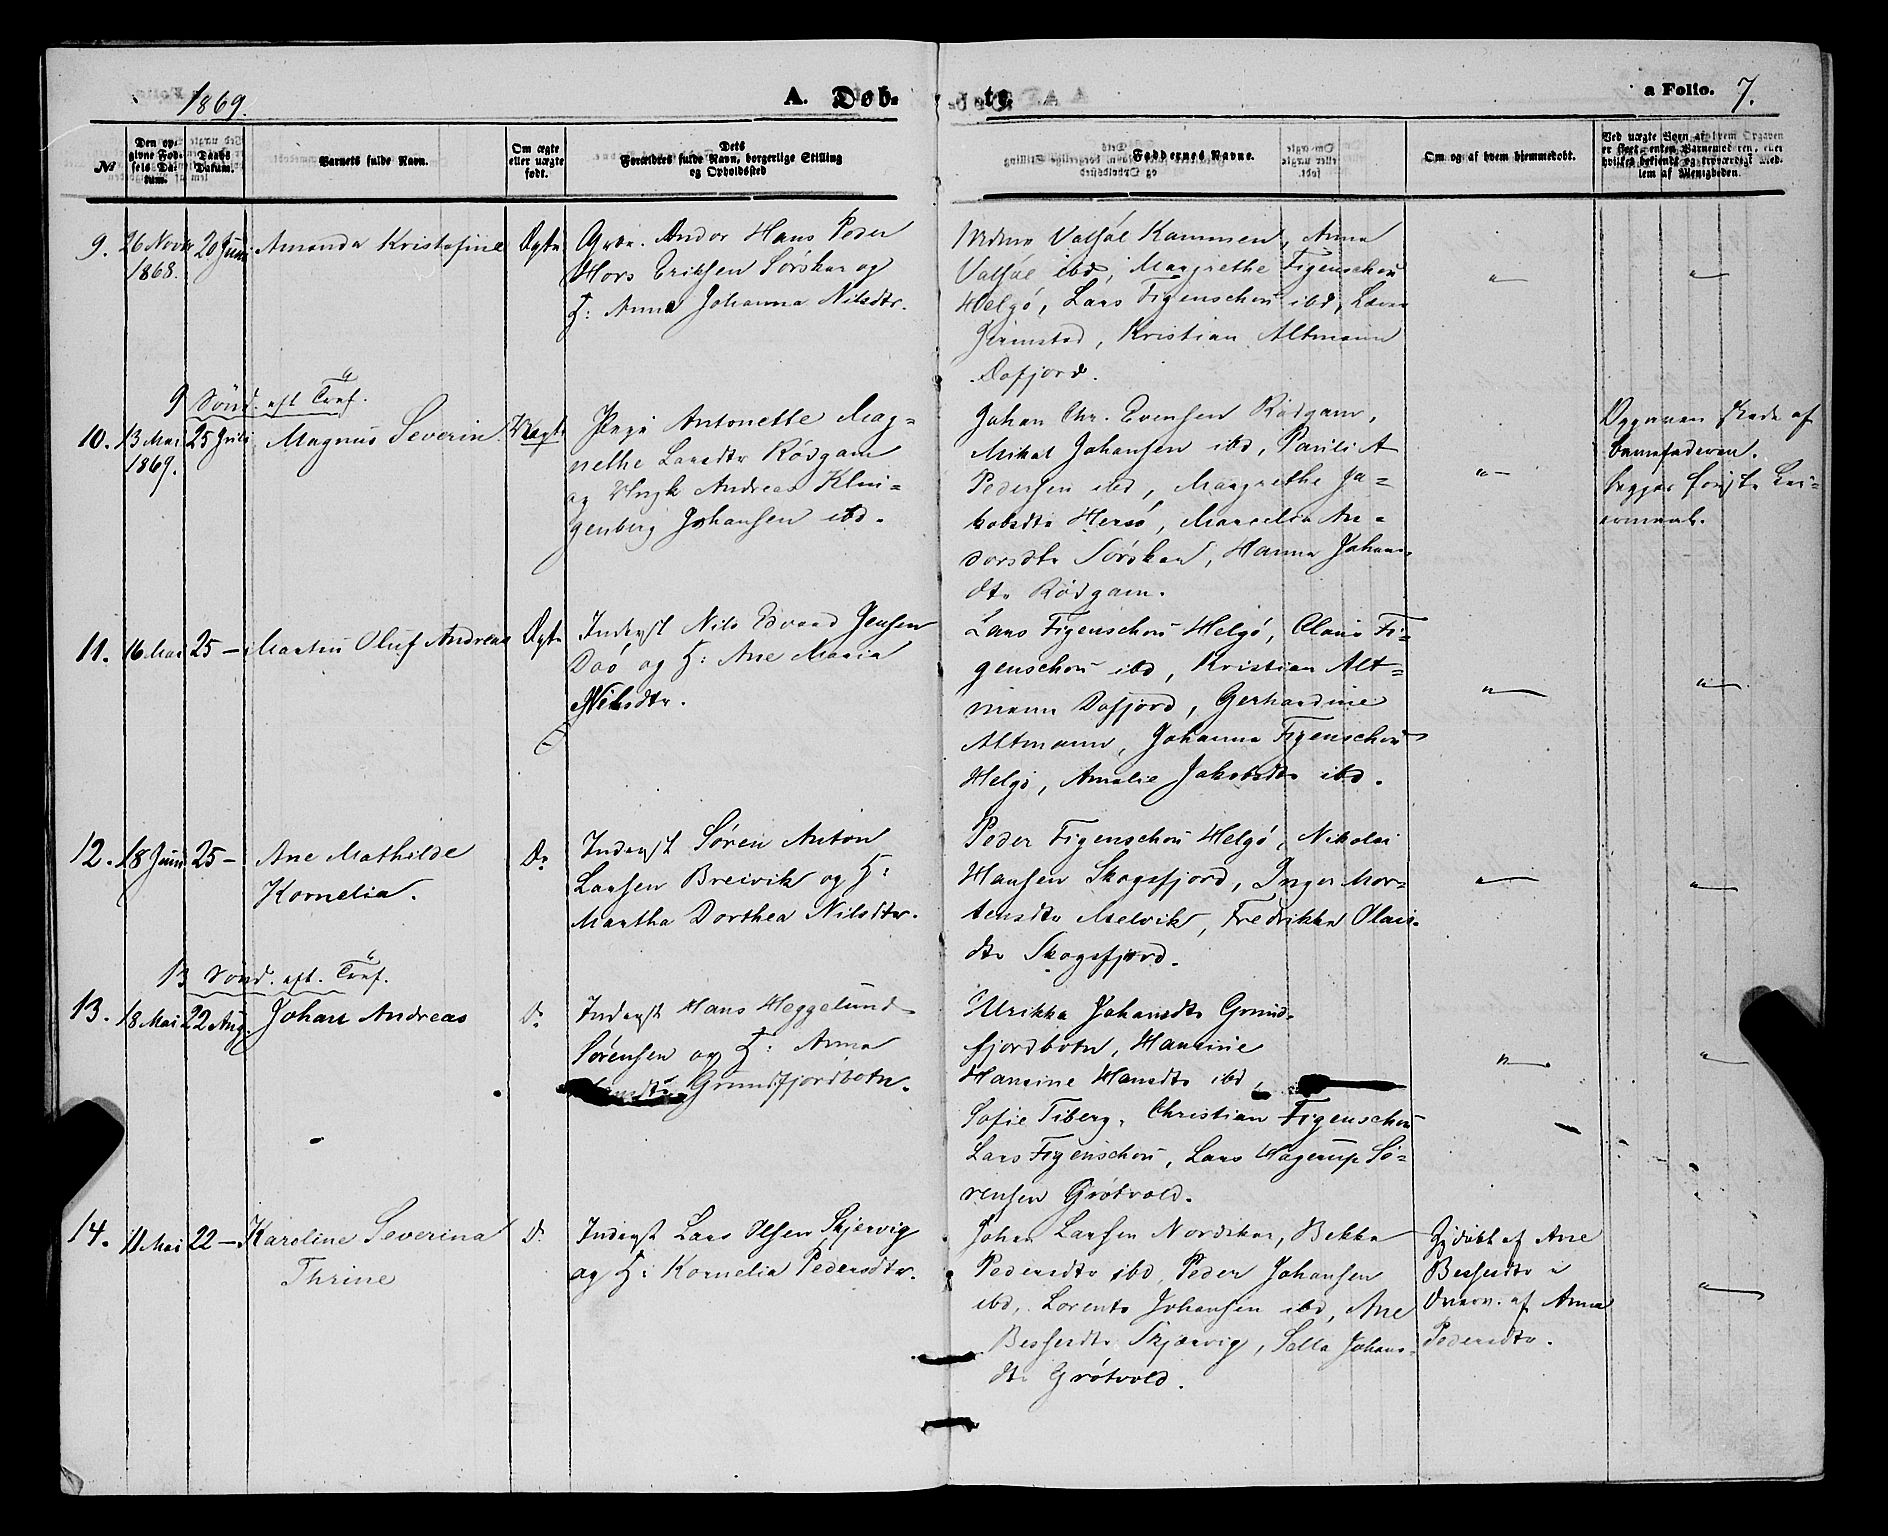 1869.
A. Døb-
te.
a Folio. 7.
№
Den op-
givne Fød-
sels Da-
tum.
Daabs
Datum.
Barnets fulde Navn.
Om ægte
eller uægte
født.
Dets
Forældres fulde Navn, borgerlige Stilling
og Opholdssted
Faddernes Navne.
Om og af hvem hjemmedøbt.
9. 26 Novbr
1868.
20 Juni
Amanda Kristofine
Ægte
Andor Hans Peder
Eriksen Sørskar og
H: Anna Johanna Nilsdtr.
Valsøl Kammen, Anna
Valsøl ibd, Margrethe Figenschou
Helgø, Lars Figenschou ibd,
Kristian Altmann
Dafjord.
"
"
9 Sønd. eft Tref.
10. 13 Mai
1869.
25 Juli
Magnus Severin
Uægte
Pige Antonette Mag-
nethe Larsdtr Rødgam
og Ungk Andreas Klin-
genberg Johansen ibd.
Johan Chr. Evensen Rødgam,
Mikal Johansen ibd, Pauli A
Pedersen ibd, Margrethe Ja-
kobsdtr Hersø, Marselia An-
dorsdtr Sørskar, Hanna Johans-
dtr Rødgam.
"
Opgaven skede af
barnefaderen.
begges første Lei-
ermaal.
11. 16 Mai
25 -
Martin Oluf Andreas
Ægte
Inderst Nils Edvard Jensen
Daø og H: Ane Maria
Nilsdtr.
Lars Figenschou Helgø, Claus Fi-
genschou ibd, Kristian Alt-
mann Dafjord, Gerhardine
Altmann, Johanna Figenschou
Helgø, Amalie Jakobsdtr ibd.
"
"
12. 18 Juni
25 -
Ane Mathilde
Kornelia.
Do
Inderst Søren Anton
Larsen Breivik og H:
Martha Dorthea Nilsdtr.
Peder Figenschou Helgø, Nikolai
Hansen Skogsfjord, Inger Mor-
tensdtr Melvik, Fredrikka Olais-
dtr Skogsfjord.
"
"
13 Sønd. eft. Tref.
13. 18 Mai
22 Aug.
Johan Andreas
Do
Inderst Hans Heggelund
Sørensen og H: Anna
Grundfjordbotn.
Ulrikka Johansdtr Grund-
fjordbotn, Hansine
Hansine Hansdtr ibd,
Sofie Tiberg, Christian Figenschou
Lars Figenschou, Lars Hagerup Sø-
rensen Grøtvold.
"
"
14. 11 Mai
22 -
Karoline Severina
Thrine
Do
Inderst Lars Olsen Skjærvig
og H: Kornelia Pedersdtr.
Johan Larsen Nordskar, Bekka
Pedersdtr ibd, Peder Johansen
ibd, Lorents Johansen ibd, Ane
Bessesdtr Skjærvig, Sella Johans-
dtr Grøtvold.
Hjdøbt af Ane
Bessesdtr i
Overv. af Anna
Pedersdtr.
"